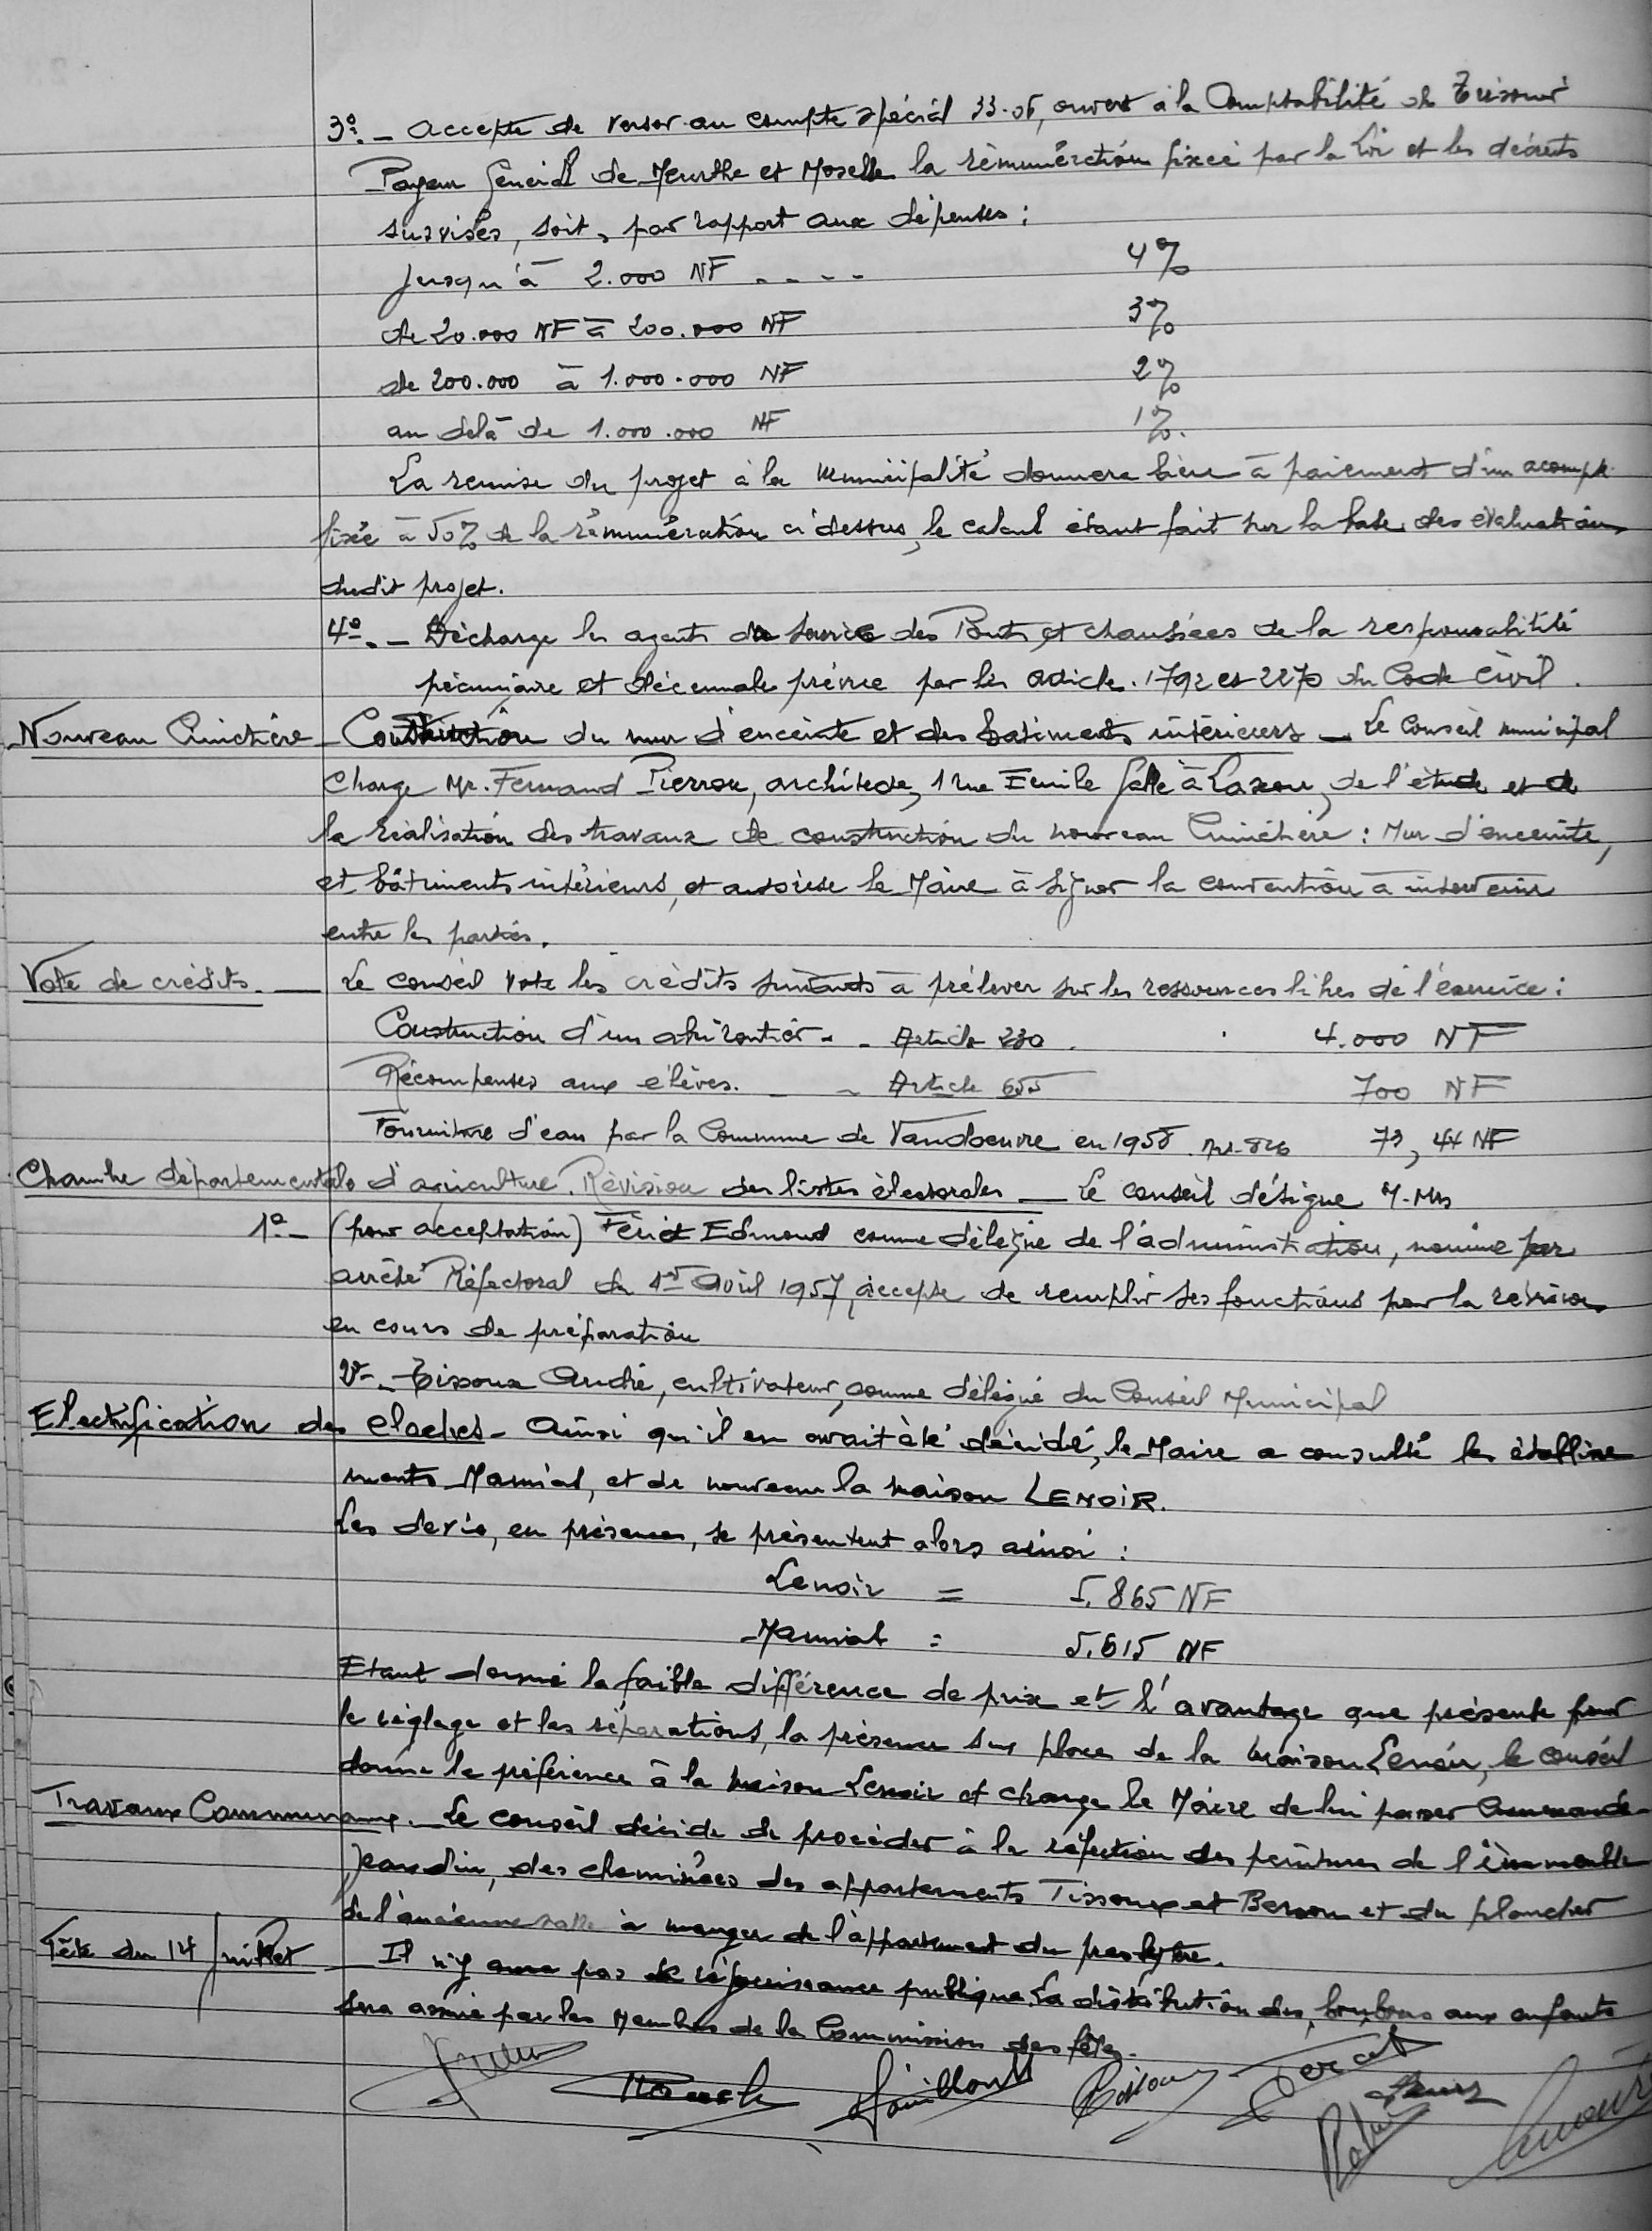 3º. - Accepte de verser au compte spécial 33-05, ouvert à la Comptabilité du Trésorier
Payeur Général de Meurthe et Moselle la rémunération fixée par la Loi et les décrets
susvisés, soit, par rapport aux dépenses :
jusqu'à 2.000 NF - - - - 4%
de 20.000 NF à 200.000 NF 3%
de 200.000 à 1.000.000 NF 2%
au delà de 1.000.000 NF 1%.
La remise du projet à la Municipalité donnera lieu à paiement d'un acompte
fixée à 50% de la rémunération ci dessus, le calcul étant fait sur la base des évaluations
dudit projet.
4º. - Décharge les agents du service des Ponts et chaussées de la responsabilité
pécuniaire et décennale prévue par les article. 1792 et 2270 du Code Civil.
Nouveau Cimetière - Construction du mur d'enceinte et des batiments intérieurs - Le Conseil municipal
Charge Mr. Fernand Pierron, architecte, 1 rue Emile Gallé à Laxou, de l'étude et de
la réalisation des travaux de construction du nouveau Cimetière : Mur d'enceinte,
et bâtiments intérieurs, et autorise le Maire à signer la convention à intervenir
entre les parties.
Vote de crédits. - Le conseil vote les crédits suivants à prélever sur les ressources libres de l'exercice :
Construction d'un - - Article 230. 4.000 NF
Récompenses aux élèves. - - Article 655 700 NF
Fourniture d'eau par la Commune de Vandoeuvre en 1958 Art. 826 73,44 NF
Chambre départementale d'agriculture. Révision des listes électorales - Le conseil désigne M. Mrs
1º - (pour acceptation) Edmond comme délégué de l'administration, nommé par
arrêté Préfectoral du 1er Avril 1957, accepte de remplir ses fonctions pour la révision
en cours de préparation
2º - Tissoux André, cultivateur, comme délégué du Conseil Municipal
Electrification des cloches - Ainsi qu'il en avait été décidé, le Maire a consulté les établisse
ments Mamias, et de nouveau la maison LENOIR.
Les devis, en présence, se présentent alors ainsi :
Lenoir = 5.865 NF
Mamias = 5.615 NF
Etant donné la faible différence de prix et l'avantage que présente pour
le réglage et les réparations, la présence sur place de la maison Lenoir, le conseil
donne la préférence à la maison Lenoir et charge le Maire de lui passer Commande
Travaux Communaux. - Le conseil décide de procéder à la réfection des peintures de l'immeuble
Jeandin, des cheminées des appartements Tissoux et Berson et du plancher
de l'ancienne salle à manger de l'appartement du presbytère.
Fête du 14 Juillet - Il n'y aura pas de réjouissance publique. La distribution des bonbons aux enfants
sera assurée par les Membres de la Commission des fêtes.